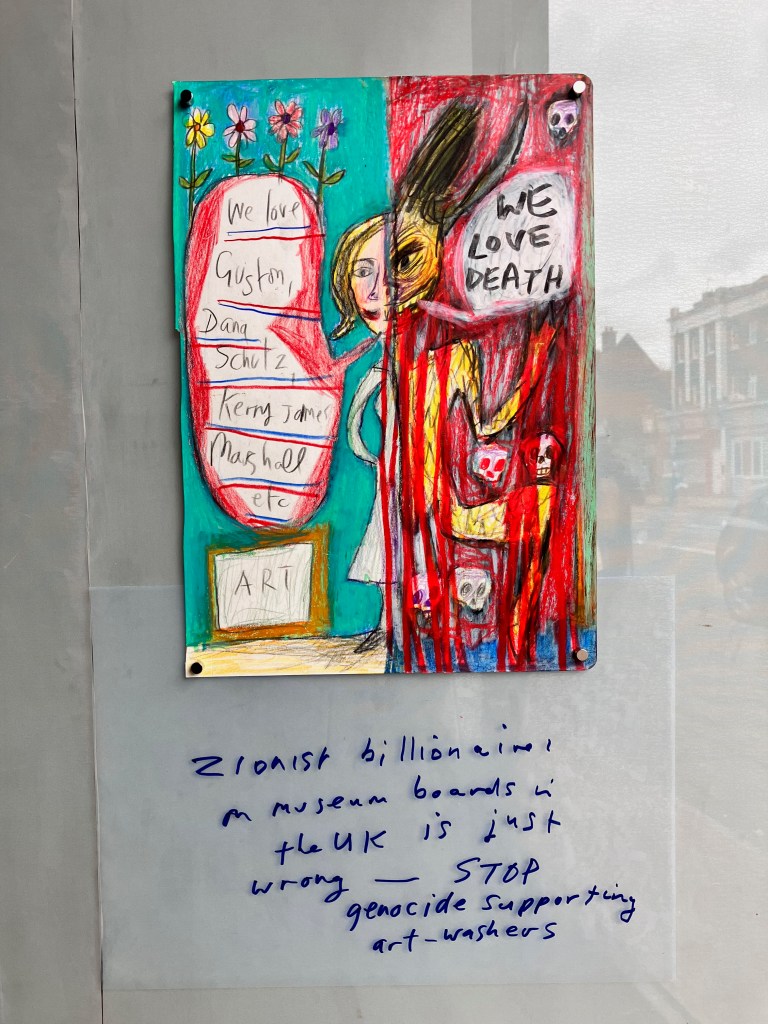 We love
Guston,
Dana
Schutz,
Kerry James
Marshall
etc
ART
WE
LOVE
DEATH
Zionist billionaires
on museum boards in
the UK is just
wrong — STOP
genocide supporting
art-washers